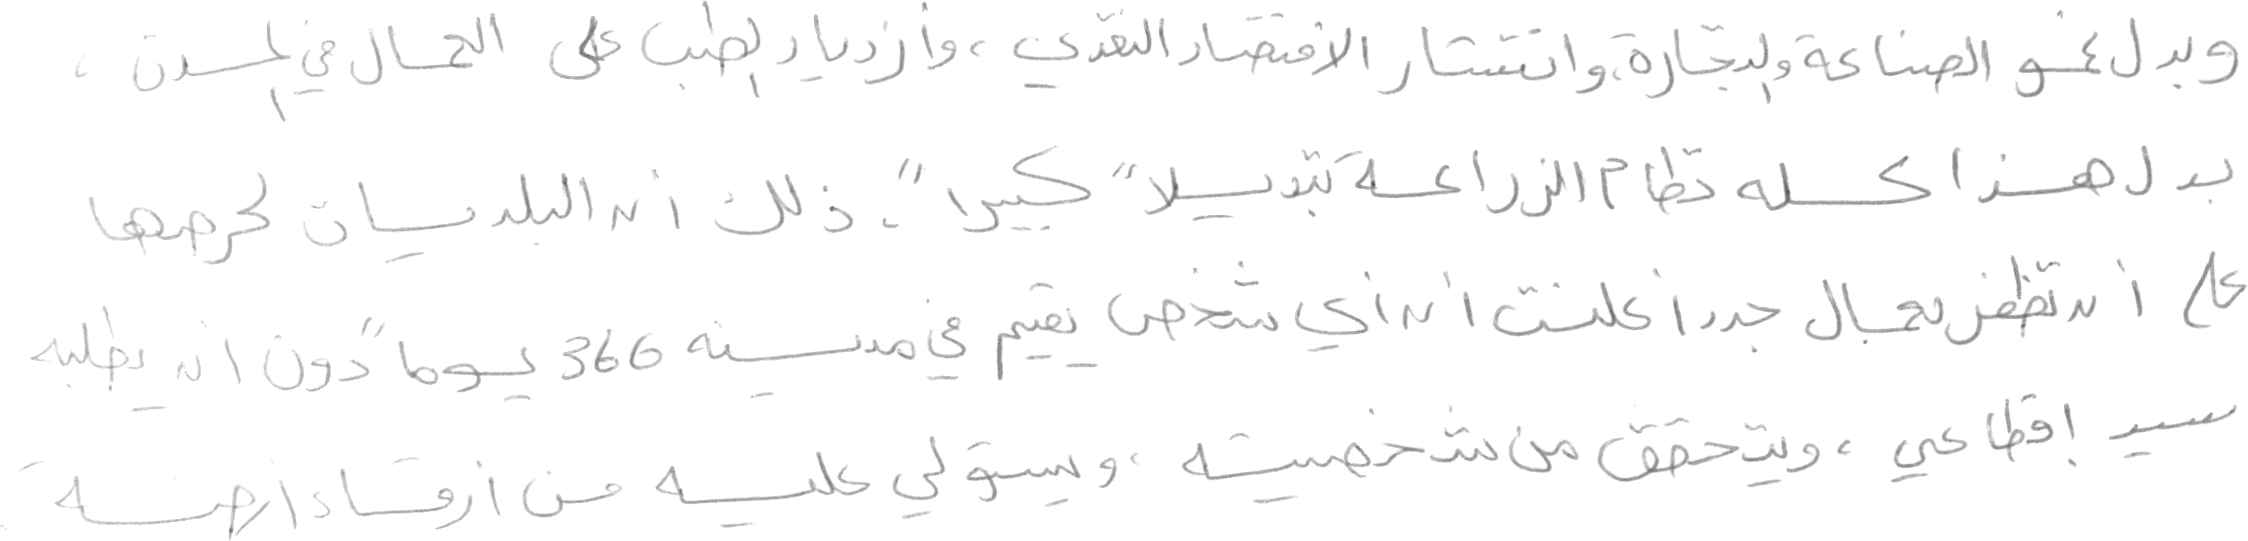 وبدل نمو الصناعة والتجارة، وانتشار الاقتصاد النقدي، وازدياد الطلب على العمال في المدن،
بدل هذا كله نظام الزراعة تبديلاً كبيراً. ذلك أن البلديات لحرصها
على أن تظفر بعمال جدد أعلنت أن أي شخص يقيم في مدينة 366 يوماً دون أن يطلبه
سيد إقطاعي، ويتحقق من شخصيته، ويستولي عليه من أرقاء أرضه